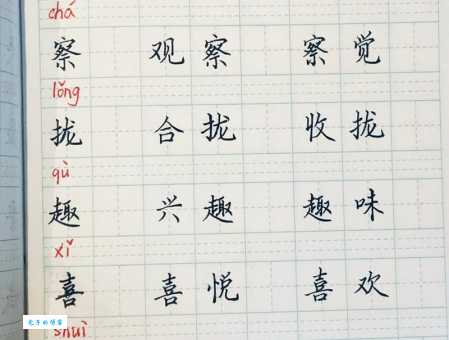 chá
察 观察 察觉
lǒng
拢 合拢 收拢
qù
趣 兴趣 趣味
xǐ
喜 喜悦 喜欢
shuì